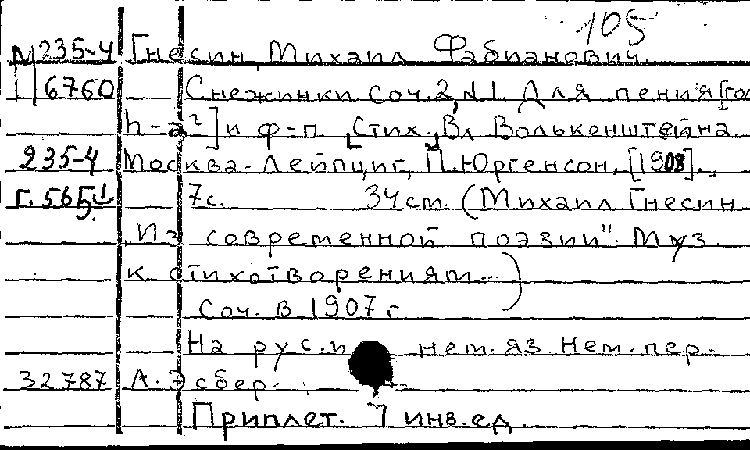 105
М 235-4 Гнесин, Михаил Фабианович.
6760 Снежинки соч. 2, №1 Для пения [гол
h-a²] и ф-п. [Стих.] Вл Волькенштейна
235-4 Москва-Лейпциг, П. Юргенсон, [1908].
Г. 565 7с. 34 см. (Михаил Гнесин
"Из современной поэзии" Муз.
к стихотворениям.)
Соч. в 1907 г
На рус. и нем. яз Нем. пер.
32787 А. Эсбер.
Приплет. 7 инв. ед.